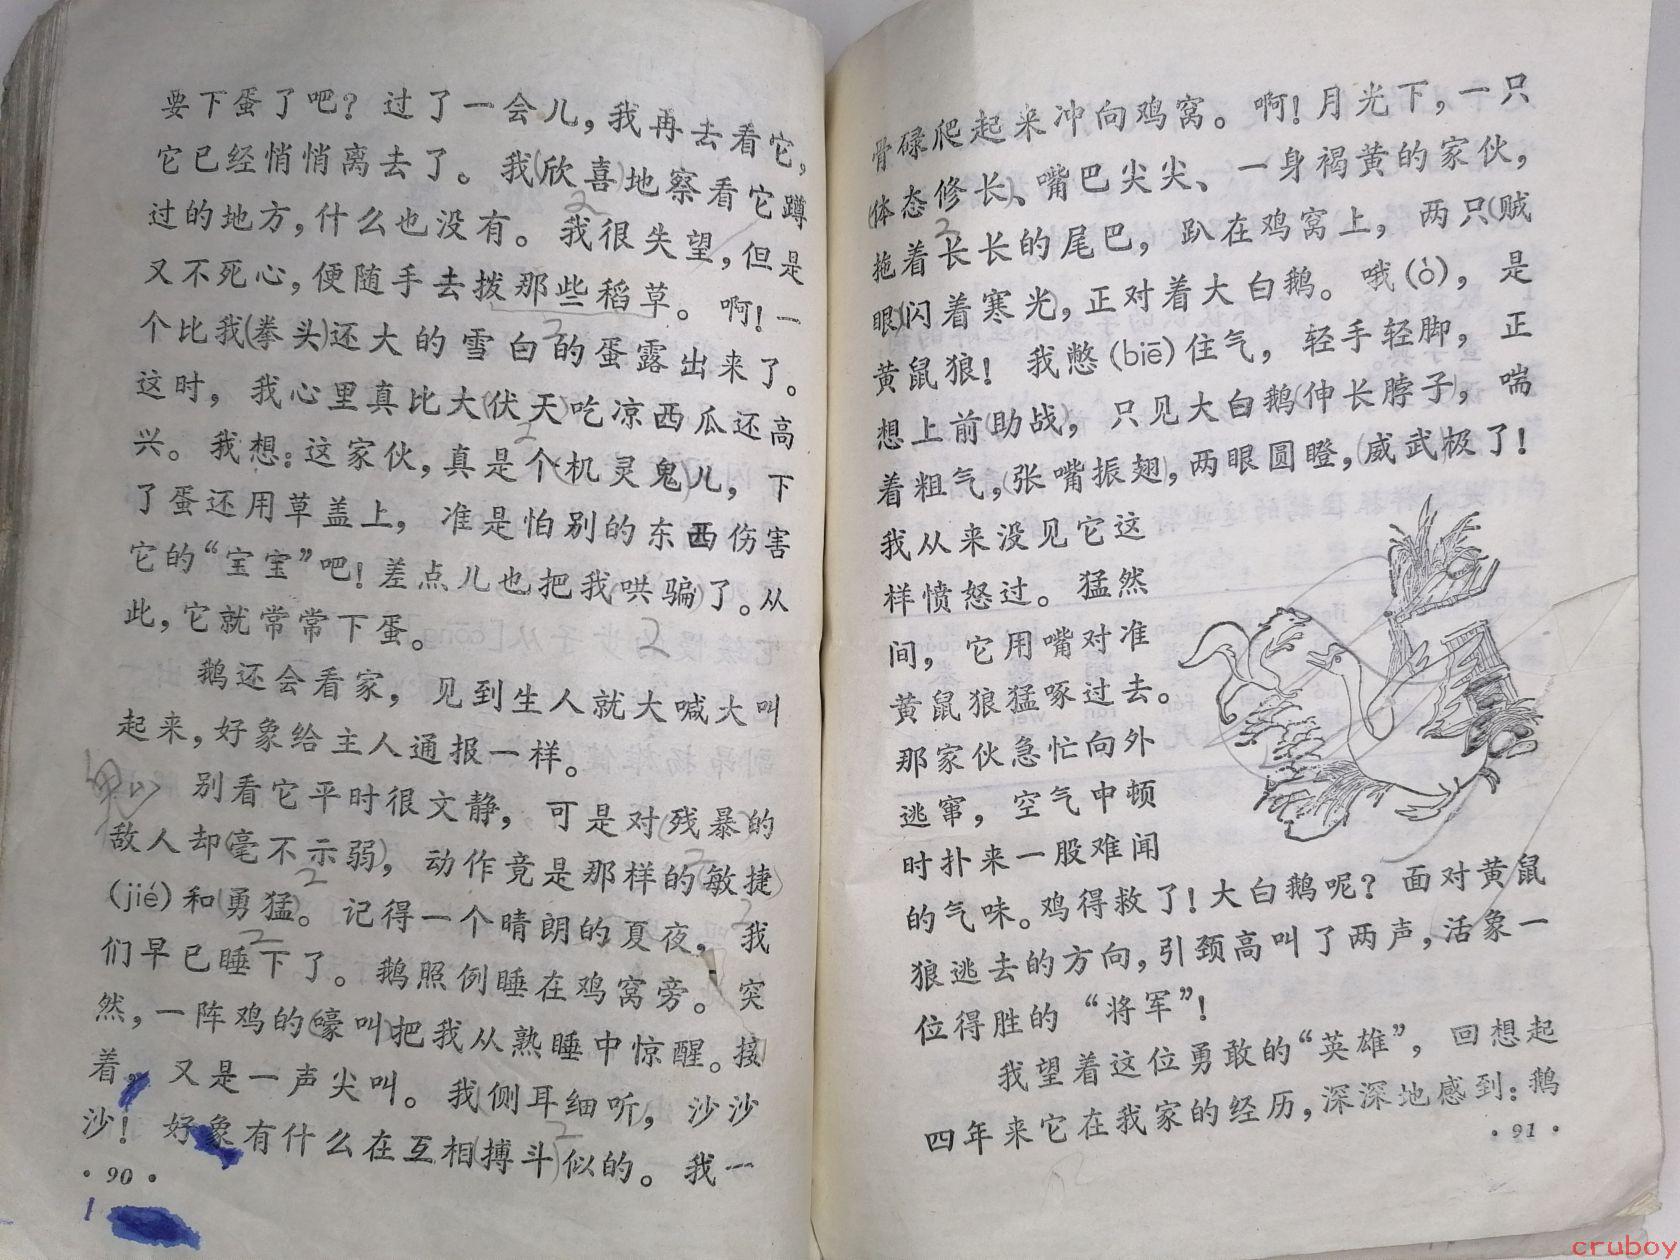 要下蛋了吧？过了一会儿，我再去看它，
它已经悄悄离去了。我(欣喜)地察看它蹲
过的地方，什么也没有。我很失望，但是
又不死心，便随手去拨那些稻草。啊！一
个比我(拳头)还大的雪白的蛋露出来了。
这时，我心里真比大(伏天)吃凉西瓜还高
兴。我想：这家伙，真是个(机灵鬼)儿，下
了蛋还用草盖上，准是怕别的东西伤害
它的“宝宝”吧！差点儿也把我哄骗了。从
此，它就常常下蛋。
鹅还会看家，见到生人就大喊大叫
起来，好象给主人通报一样。
别看它平时很文静，可是对(残暴的
敌人却(毫不示弱)，动作竟是那样的(敏捷)
(jié)和(勇猛)。记得一个晴朗的夏夜，我
们早已睡下了。鹅照例睡在鸡窝旁。突
然，一阵鸡的(嚎叫)把我从熟睡中惊醒。接
着，又是一声尖叫。我侧耳细听，沙沙
沙！好象有什么在互相(搏斗)似的。我一
·90·
1
骨碌爬起来冲向鸡窝。啊！月光下，一只
(体态修长)、嘴巴尖尖、一身褐黄的家伙，
拖着长长的尾巴，趴在鸡窝上，两只(贼
眼)闪着寒光，正对着大白鹅。哦(ò)，是
黄鼠狼！我憋(biē)住气，轻手轻脚，正
想上前(助战)，只见大白鹅(伸长脖子)，喘
着粗气，(张嘴振翅)，两眼圆瞪，(威武极了！
我从来没见它这
样愤怒过。猛然
间，它用嘴对准
黄鼠狼猛啄过去。
那家伙急忙向外
逃窜，空气中顿
时扑来一股难闻
的气味。鸡得救了！大白鹅呢？面对黄鼠
狼逃去的方向，引颈高叫了两声，活象一
位得胜的“将军”！
我望着这位勇敢的“英雄”，回想起
四年来它在我家的经历，深深地感到：鹅
·91·
cruboy